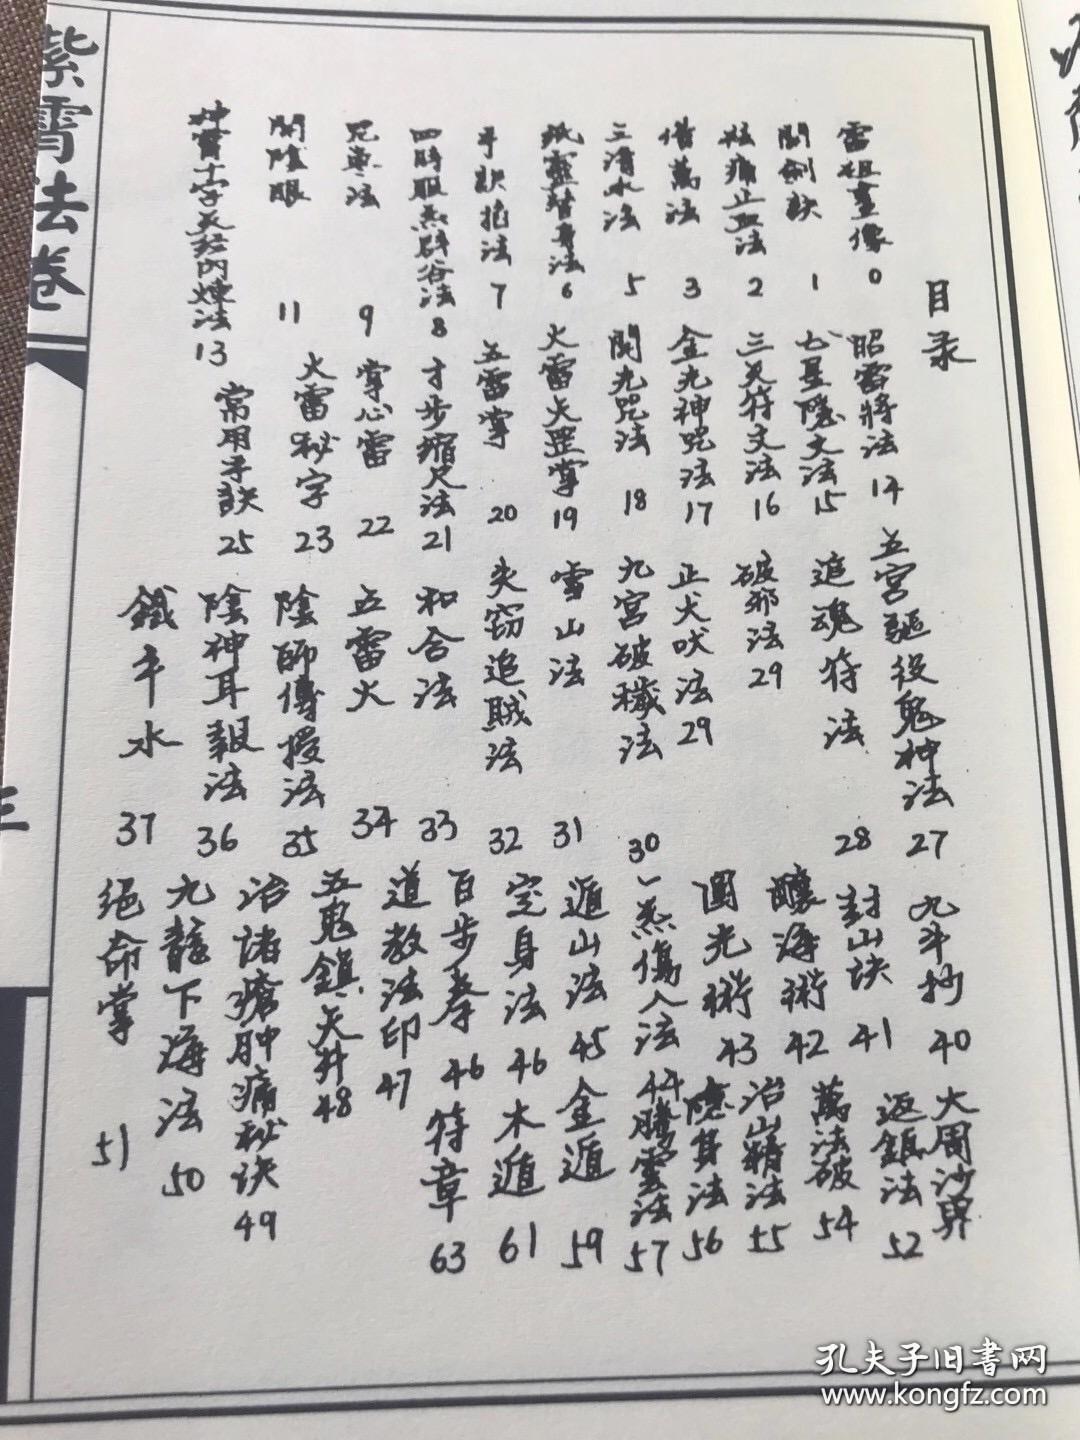 紫霄法卷
三
目录
雷祖畫像 0
開劍訣 1
止血法 2
借萬法 3
三清水法 5
紙靈替身法 6
手訣掐法 7
四時服炁辟谷法 8
咒棗法 9
開陰眼 11
神霄十字天經內煉法 13
昭雷將法 14
七星隱文法 15
三天符文法 16
金光神咒法 17
開光咒法 18
火雷天罡掌 19
五雷掌 20
才步縮尺法 21
掌心雷 22
火雷秘字 23
常用手訣 25
五宮驅役鬼神法 27
追魂符法 28
破邪法 29
止犬吠法 29
九宮破穢法 30
雪山法 31
失窃追賊法 32
和合法 33
五雷火 34
陰師傳授法 35
陰神耳報法 36
鐵牛水 37
九斗抄 40
封山诀 41
釀海術 42
圓光術 43
一炁傷人法 44
遁山法 45
定身法 46
百步拳 46
道教法印 47
五鬼鎮天井 48
治諸瘡肿痛秘诀 49
九龍下海法 50
絕命掌 51
大周沙界
返鎮法 52
萬法破 54
治山精法 55
隱身法 56
騰雲法 57
金遁 59
木遁 61
符章 63
孔夫子旧書网
www.kongfz.com